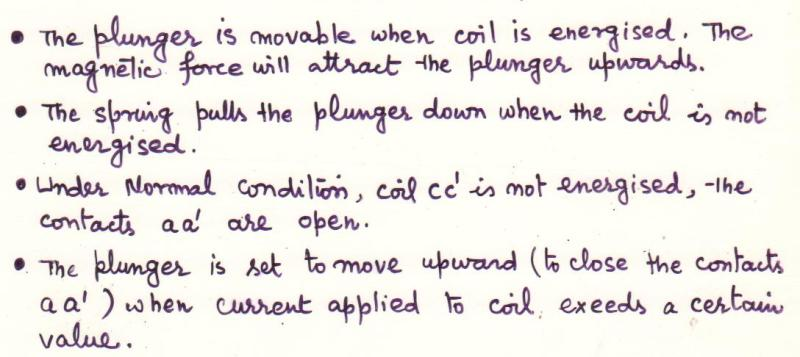 • The plunger is movable when coil is energised. The
magnetic force will attract the plunger upwards.
• The spring pulls the plunger down when the coil is not
energised.
• Under Normal condition, coil cc' is not energised, the
contacts aa' are open.
• The plunger is set to move upward (to close the contacts
aa') when current applied to coil, exeeds a certain
value.